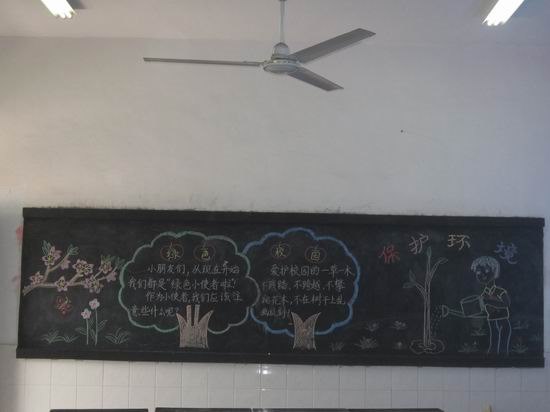 绿色
小朋友们，从现在开始
我们都是"绿色小使者啦！
作为小使者，我们应该注
意些什么呢？
校园
爱护校园的一草一木，
不践踏、不跨越、不攀
花木，不在树干上乱
画乱刻！
保护环境